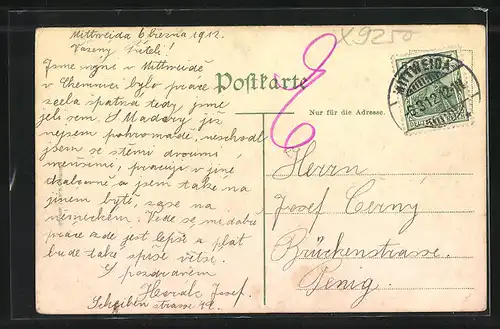 Mittweida 6 března 1912.
Vážený Příteli!
Jsme nyní v Mittweidě
v Chemnici bylo práce
zcela špatná tedy jsme
jeli sem. S Maďary již
nejsem pohromadě, neschodl
jsem se s těmi dvouma
menšíma, pracují v jiné
a jsem také na
jiném bytě, zase na
německém. Vede se mi dobře
práce zde jest lepší a plat
bude také spíše větší.
S pozdravem
Horák Josef.
Scheiben strasse 49.
Postkarte
Nur für die Adresse.
X9250
MITTWEIDA
6.3.12.
Herrn
Josef Černý
Brückenstrasse.
Penig.